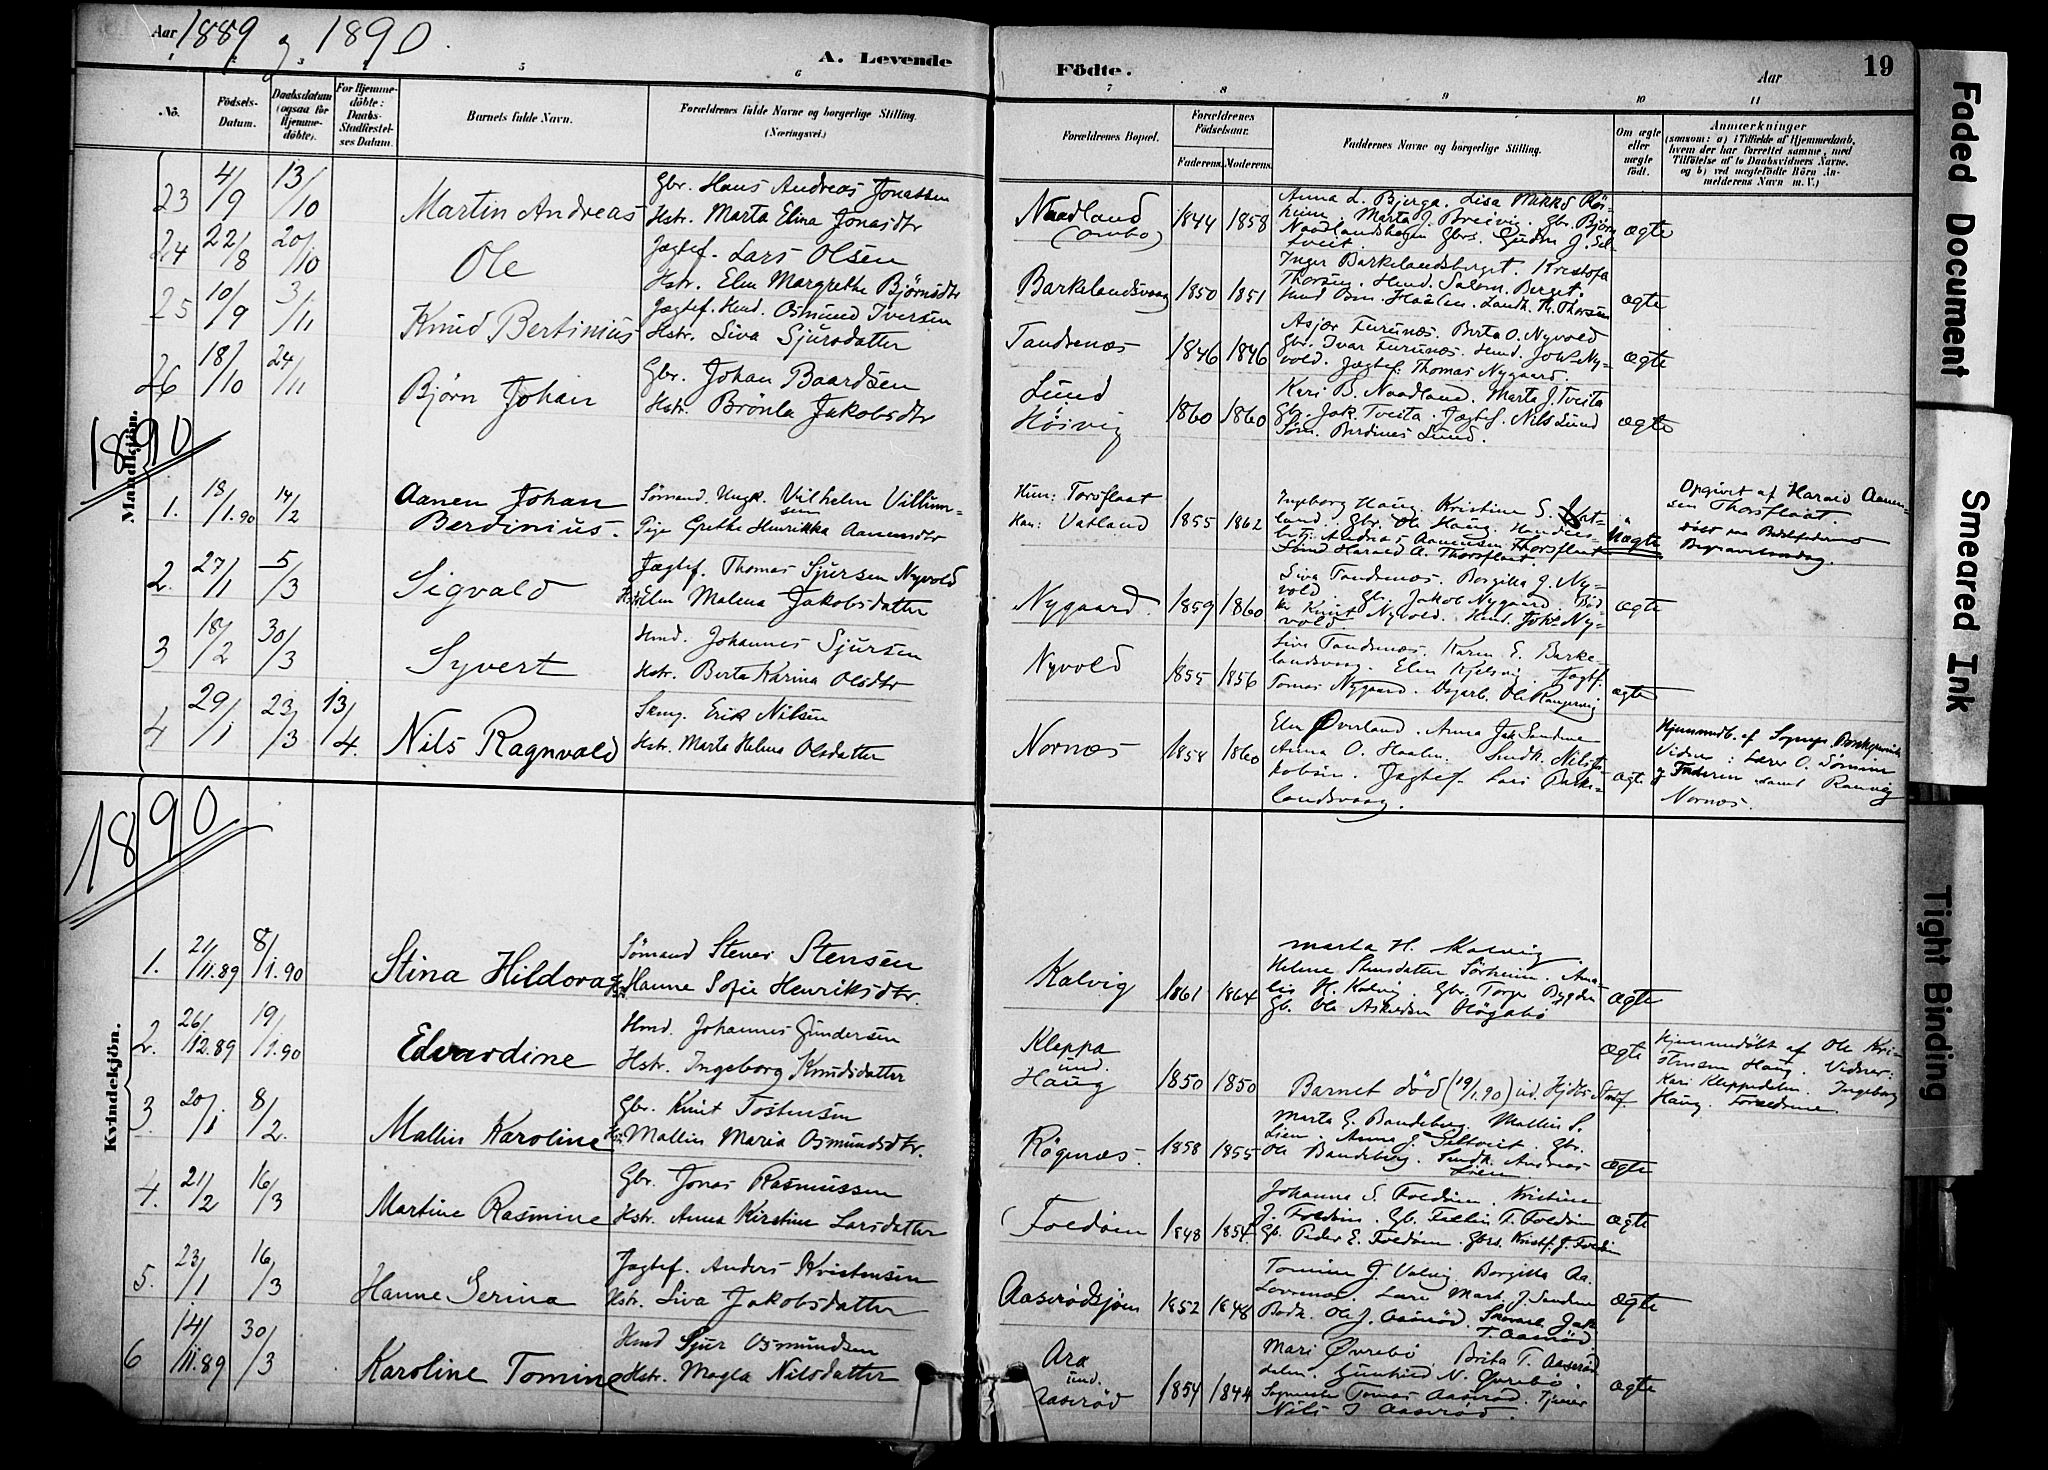 Aar 1889 og 1890.
A. Levende
Födte.
Aar
19
1 2 3 4 5 6 7 8 9 10 11
No.
Födsels-
Datum.
Daabsdatum
(ogsaa for
Hjemme-
döbte).
For Hjemme-
döbte:
Daabs-
Stadfæstel-
ses Datum.
Barnets fulde Navn.
Forældrenes fulde Navne og borgerlige Stilling.
(Næringsvei.)
Forældrenes Bopæl.
Forældrenes
Födselsaar.
Faderens. Moderens.
Faddernes Navne og borgerlige Stilling.
Om ægte
eller
uægte
födt.
Anmærkninger
(saasom: a) i Tilfælde af Hjemmedaab,
hvem der har forrettet samme, med
Tilföielse af to Daabsvidners Navne.
og b) ved uægtefödte Börn An-
melderens Navn m. V.)
23 4/9 13/10 Martin Andreas
Gbr. Hans Andreas Jonassen
Hstr. Marta Elina Jonasdtr
Naadland
(Ombo)
1844 1858
Anna L. Bjerga. Lisa Mikkd
Marta J. Breivig. Gbr. Bjørn
ægte
24 22/8 20/10 Ole
Jægtef. Lars Olsen
Hstr. Elen Margrethe Bjørnsdtr
Barkelandsvaag 1850 1851
Inger Barkelandsberget. Kristofa
Thorsen. Hmd. Salom. Berget.
Landh. Th. Thorsen
ægte
25 10/9 3/11 Knud Bertinius
Jægtef. Hmd. Osmund Iversen
Hstr. Siva Sjursdatter
Tandrenæs 1846 1846
Asjær Furunæs. Berta O. Nyvold
Gbr. Ivar Furunæs. Hmd. Johs Ny-
vold. Jægtef. Thomas Nygaard.
ægte
26 18/10 24/11 Bjørn Johan
Gbr. Johan Baardsen
Hstr. Brönla Jakobsdtr
Lund
Høivig
1860 1860
Kari B. Naadland. Marta J. Tveita
Gbr. Jak. Tveita. Jægtef. Nils Lund
Søm. Berdines Lund.
ægte
1890
Mandkjön.
1. 18/1.90 14/2 Aanen Johan
Berdinius.
Sømand. Ungk. Vilhelm Villum-
sen
Pige Grethe Henrikka Aanensdtr
Han: Torsflaat
Hun: Vatland
1855 1862
Ingeborg Haug. Kristine S. Vat-
land. Gbr. Ole Haug.
Andreas Aanensen Thorsflaat
Harald A. Thorsflaat.
Uægte
Opgivet af Harald Aanen-
sen Thorsflaat.
2. 27/1 5/3 Sigvald
Jægtef. Thomas Sjursen Nyvold
Hstr Elen Malena Jakobsdatter
Nygaard. 1859 1860
Siva Tandrenæs. Borgilla J. Ny-
vold. Gbr. Jakob Nygaard. Bød
ker Knut Nyvold. Hmd. Johs Ny-
vold
ægte
3 18/2 30/3 Syvert
Hmd. Johannes Sjursen
Hstr. Berta Karina Olsdtr
Nyvold 1855 1856
Siva Tandrenæs. Karen E. Barke-
landsvaag. Elen Kjelsvig. Jægtf.
Tomas Nygaard. Dagarb. Ole
ægte
4 29/1 23/3 13/4. Nils Ragnvald
Erik Nilsen
Hstr. Marta Helena Olsdatter
Nornæs 1854 1860
Elen Øverland. Anna Jak. Sandene
Anna O. Haalen. Nils Ja-
kobsen. Jægtef. Lars Barke-
landsvaag.
ægte
Hjemmedb. af
Vidner: Lærer O. Sömme
og Faderen samt
Nornæs.
1890
Kvindekjön.
1. 21/11.89 8/1.90 Stina Hildora
Sömand Stener Stensen
Hstr Hanne Sofie Henriksdtr.
Kalvig 1861 1864
Marta H. Kalvig
Helene Stensdatter Sørheim. Ama-
lie H. Kalvig. Gbr. Torger
Gb. Ole Askildsen
ægte
2. 26/12.89 19/1.90 Edvardine
Hmd. Johannes Gundersen
Hstr. Ingeborg Knudsdatter
Kleppa
und.
Haug
1850 1850
Barnet död (19/1.90) ud. Hjdbs Stadf.
ægte
Hjemmedöbt af Ole Kri-
stensen Haug. Vidner:
Kari Kleppedelen. Ingeborg
Haug. Forældrene.
3. 20/1 8/2. Mallin Karoline
Gbr. Knut Tostensen
Hstr. Mallin Maria Osmundsdtr.
Rögenæs. 1858 1855
Marta E. Bandeberg. Mallin S.
Lien. Anna J. Seltveit Gbr.
Ole Bandeberg. Andreas
Lien
ægte
4. 21/2 16/3 Martine Rasmine
Gbr. Jonas Rasmussen
Hstr. Anna Kirstine Larsdatter
Foldøen 1848 1854.
Johanna S. Foldøen. Kristine
J. Foldøen. Gb. T. Foldøen
Gb. Peder E. Foldøen. Gbrs. Kristf. J. Foldøen
ægte
5. 23/1 16/3 Hanne Serina
Jægtef. Anders Kristensen
Hstr. Siva Jakobsdatter
Aaserödsjöen 1852 1848
Tomine J. Valvig. Borgilla Aa.
Lovrenæs. Lærer Mart. J. Sandene
Bødk. Ole J. Aaseröd. Skomak. Jak.
T. Aaseröd
ægte
6 14/11.89 30/3 Karoline Tomine
Hmd Sjur Osmundsen
Hstr. Magla Nilsdatter
Ara
und.
Aaseröd
1854 1844
Mari Øvrebö. Brita T. Aaseröd
dalen. Gunhild N. Øvrebö
Tomas Aaseröd. Tjener
Nils T Aaseröd.
ægte
Faded Document
Smeared Ink
Tight Binding